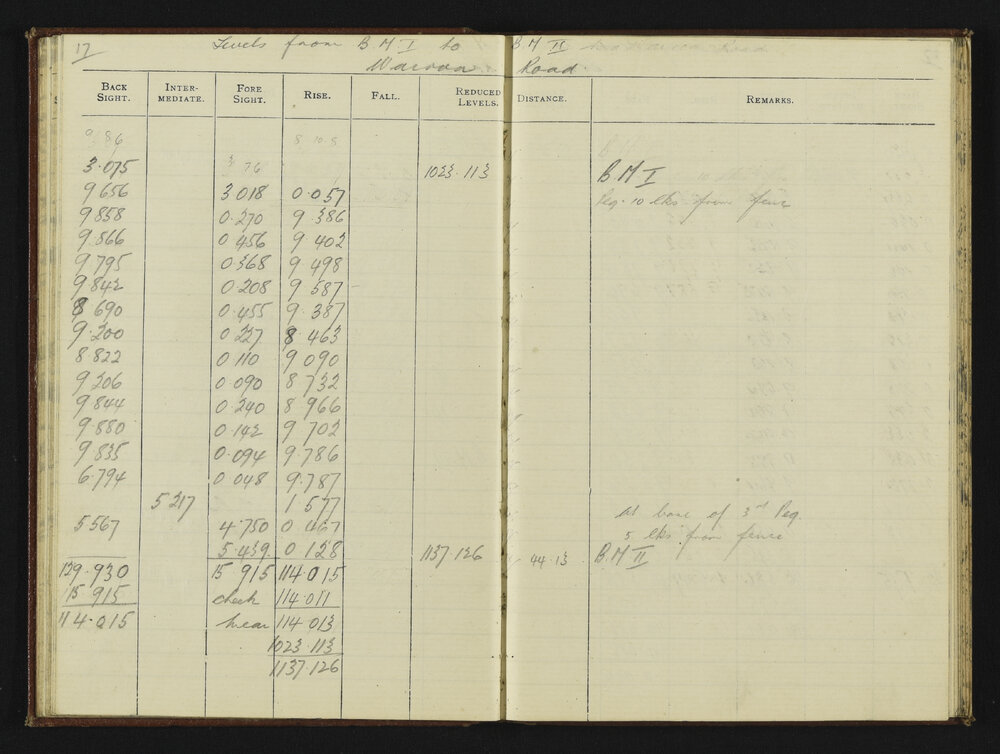 17 Levels from B M I to B M II
Waroona Road.
BACK SIGHT. INTER-MEDIATE. FORE SIGHT. RISE. FALL. REDUCED LEVELS. DISTANCE. REMARKS.
3.075 1023.113 B.M I
9.656 3.018 0.057 Peg 10 lks from fence
9.858 0.270 9.386
9.866 0.456 9.402
9.795 0.368 9.498
9.842 0.208 9.587
8.690 0.455 9.387
9.200 0.227 8.463
8.822 0.110 9.090
9.206 0.090 8.732
9.844 0.240 8.966
9.880 0.142 9.702
9.835 0.094 9.786
6.794 0.048 9.787
5.217 1.577
5.567 4.750 0.467 at base of 3rd Peg
5 lks from fence
5.439 0.128 1137.126 44.13 B.M II
129.930 15.915 114.015
15.915 check 114.011
114.015 mean 114.013
1023.113
1137.126